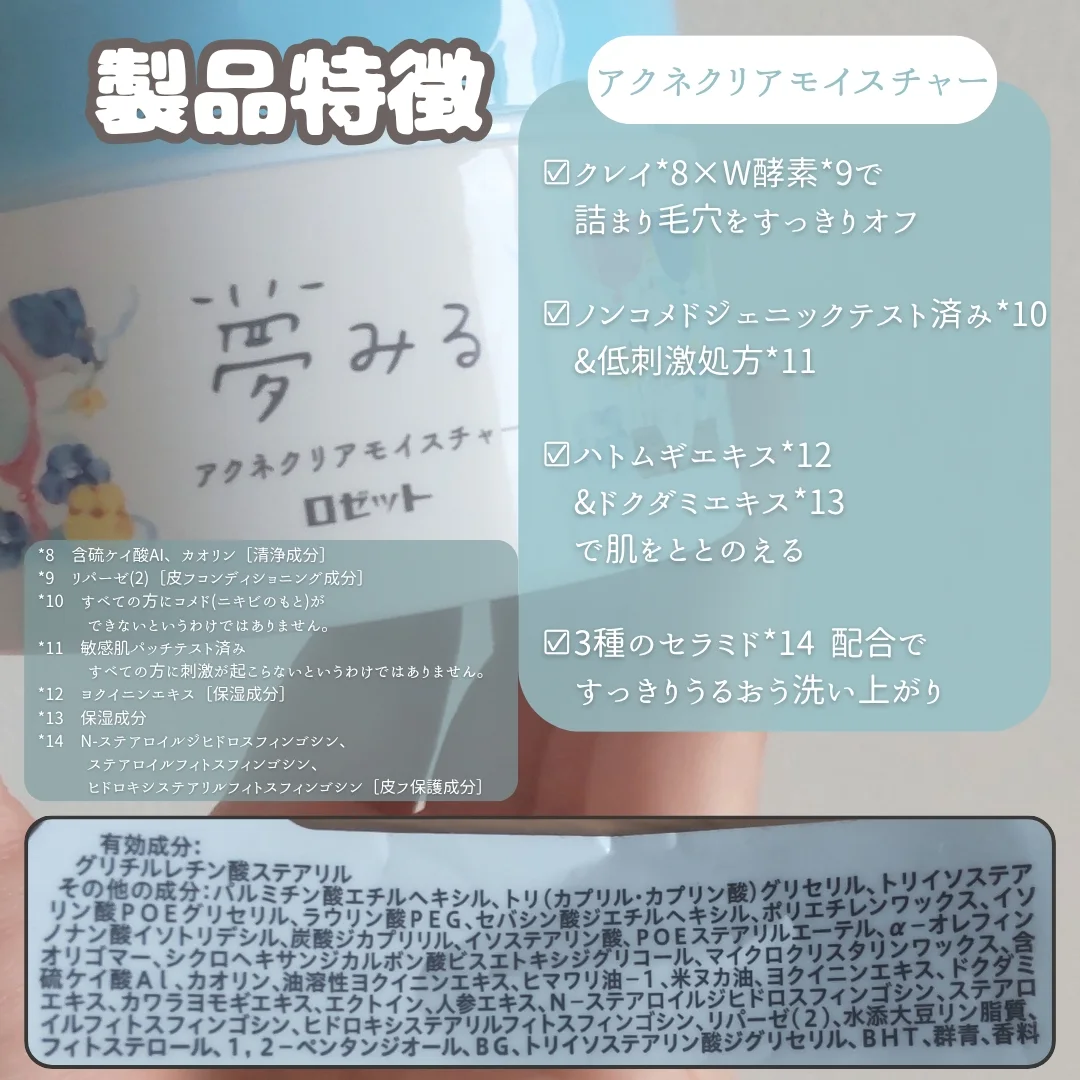 製品特徴
アクネクリアモイスチャー
☑クレイ*8×W酵素*9で
詰まり毛穴をすっきりオフ
☑ノンコメドジェニックテスト済み*10
&低刺激処方*11
☑ハトムギエキス*12
&ドクダミエキス*13
で肌をととのえる
☑3種のセラミド*14 配合で
すっきりうるおう洗い上がり
夢みる
アクネクリアモイスチャー
ロゼット
*8 含硫ケイ酸Al、カオリン［清浄成分］
*9 リパーゼ(2)［皮フコンディショニング成分］
*10 すべての方にコメド(ニキビのもと)が
できないというわけではありません。
*11 敏感肌パッチテスト済み
すべての方に刺激が起こらないというわけではありません。
*12 ヨクイニンエキス［保湿成分］
*13 保湿成分
*14 N-ステアロイルジヒドロスフィンゴシン、
ステアロイルフィトスフィンゴシン、
ヒドロキシステアリルフィトスフィンゴシン［皮フ保護成分］
有効成分:
グリチルレチン酸ステアリル
その他の成分:パルミチン酸エチルヘキシル、トリ(カプリル・カプリン酸)グリセリル、トリイソステア
リン酸POEグリセリル、ラウリン酸PEG、セバシン酸ジエチルヘキシル、ポリエチレンワックス、イソ
ノナン酸イソトリデシル、炭酸ジカプリリル、イソステアリン酸、POEステアリルエーテル、α-オレフィン
オリゴマー、シクロヘキサンジカルボン酸ビスエトキシジグリコール、マイクロクリスタリンワックス、含
硫ケイ酸Al、カオリン、油溶性ヨクイニンエキス、ヒマワリ油-1、米ヌカ油、ヨクイニンエキス、ドクダミ
エキス、カワラヨモギエキス、エクトイン、人参エキス、N-ステアロイルジヒドロスフィンゴシン、ステアロ
イルフィトスフィンゴシン、ヒドロキシステアリルフィトスフィンゴシン、リパーゼ(2)、水添大豆リン脂質、
フィトステロール、1,2-ペンタンジオール、BG、トリイソステアリン酸ジグリセリル、BHT、群青、香料